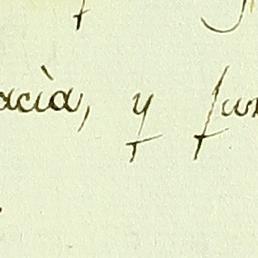 acià, y fun